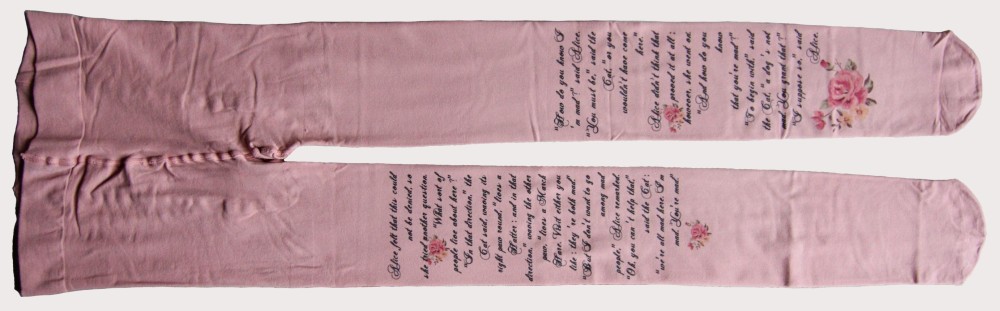 Alice felt that this could
not be denied, so
she tried another question.
"What sort of
people live about here ?"
"In that direction," the
Cat said, waving its
right paw round, "lives a
Hatter: and in that
direction," waving the other
paw, "lives a March
Hare. Visit either you
like: they're both mad."
"But I don't want to go
among mad
people," Alice remarked.
"Oh, you can't help that,"
said the Cat:
"we're all mad here. I'm
mad. You're mad."
"How do you know I
'm mad?" said Alice.
"You must be," said the
Cat, "or you
wouldn't have come
here."
Alice didn't think that
proved it at all:
however, she went on
"And how do you
know
that you're mad?"
"To begin with," said
the Cat, "a dog's not
mad. You grant that?"
"I suppose so," said
Alice.